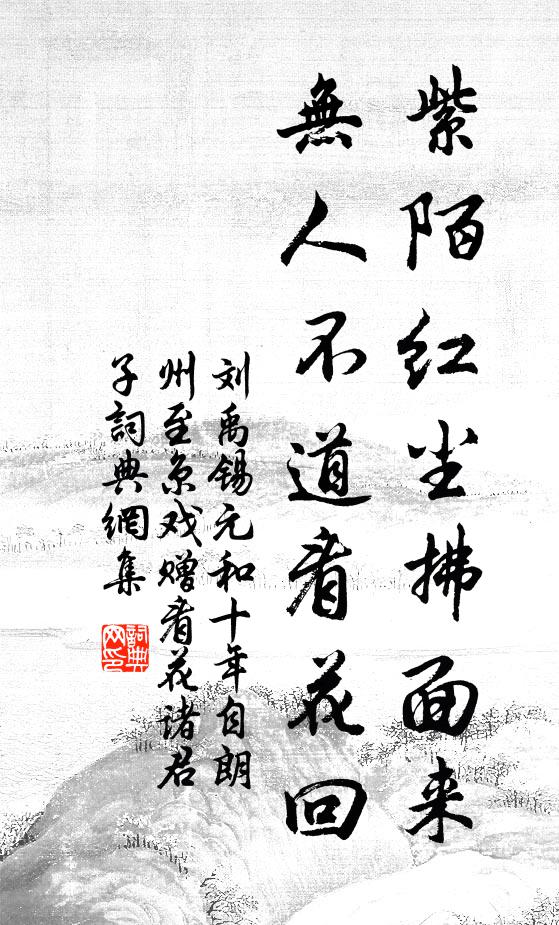 紫陌红尘拂面来
無人不道看花回
刘禹锡元和十年自朗
州至京戏赠看花诸君
子詞典網集
詞典
网印